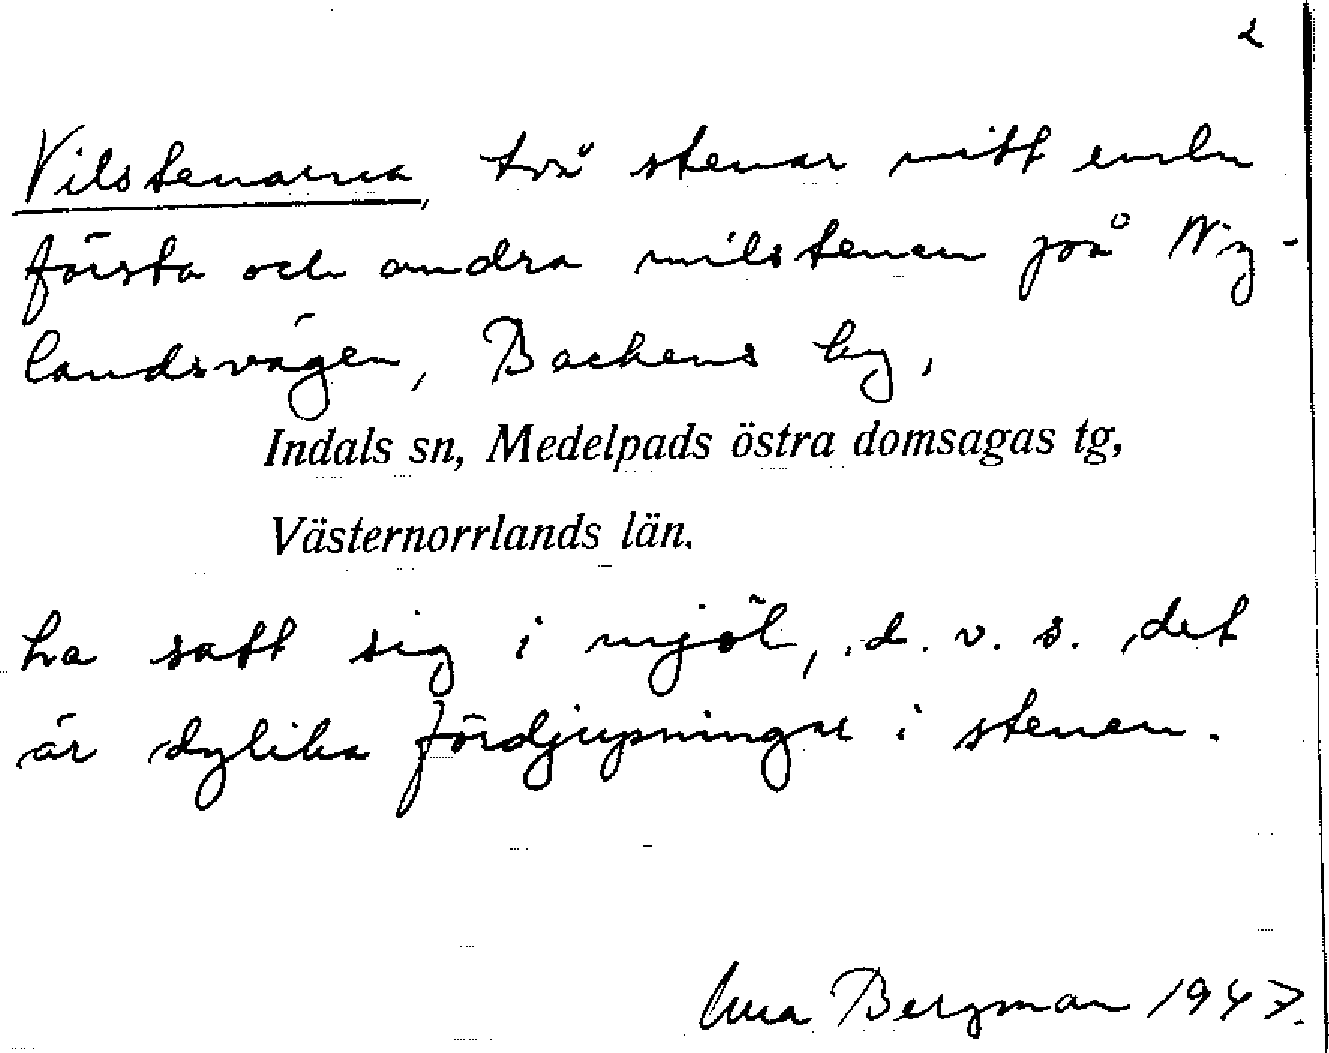 2
Vilstenarna, två stenar mitt emln
första och andra milstenen på Ny-
landsvägen, Backens by,
Indals sn, Medelpads östra domsagas tg,
Västernorrlands län.
ha satt sig i mjöl, d. v. s. det
är dylika fördjupningar i stenen.
Bergman 1947.